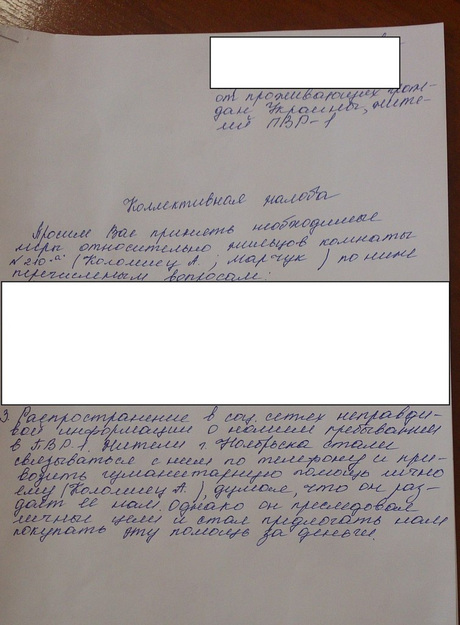 от проживающих граж-
дан Украины, жите-
лей ПВР-1
Коллективная жалоба
Просим Вас принять необходимые
меры относительно жильцов комнаты
№210 "а" (Коломиец А.; Марчук) по ниже
перечисленым вопросам:
3. Распространение в соц. сетях неправди-
вой информации о нашем пребывании
в ПВР-1. Жители г. Ноябрьска стали
связываться с ним по телефону и при-
возить гуманетарную помощь лично
ему (Коломиец А.), думая, что он раз-
даёт её нам. Однако он преследовал
личные цели и стал предлогать нам
покупать эту помощь за деньги.